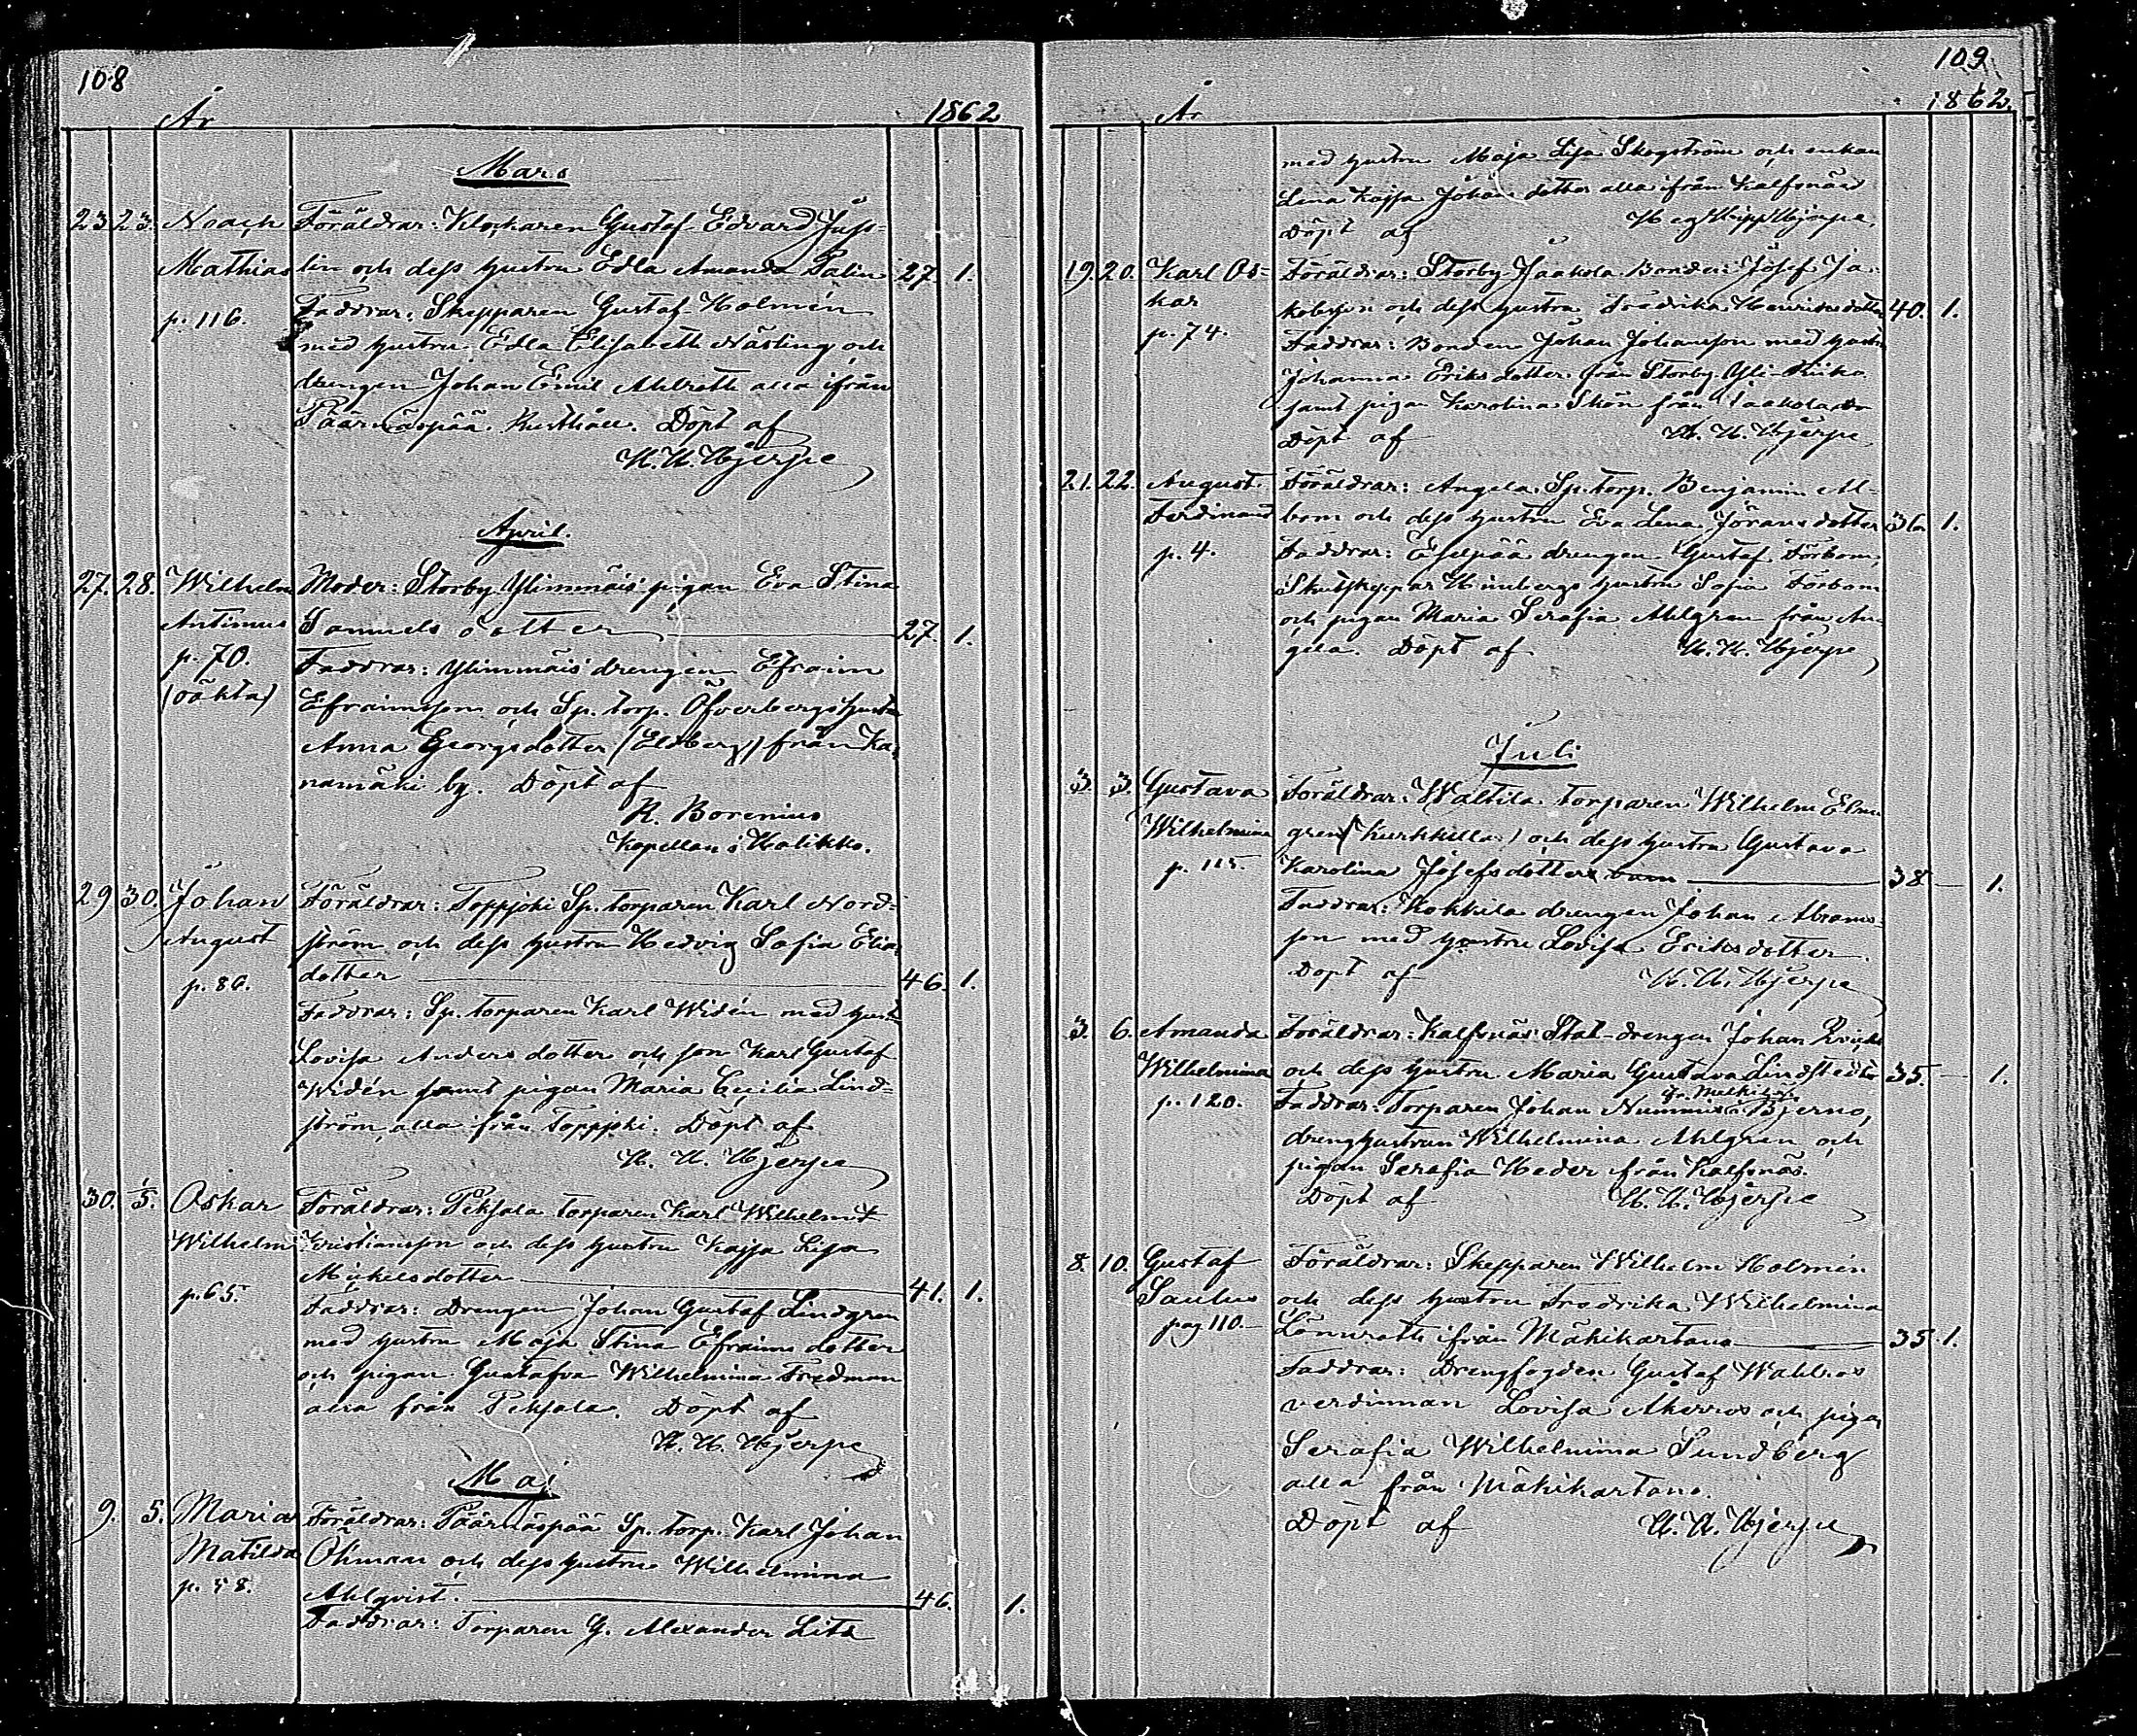 108
År 1862
Mars
23 23. Noach Föräldrar: Klockaren Gustaf Edvard Juse-
Mathias lin och dess hustru Edla Amanda Palin 27. 1.
p. 116. Faddrar: Skepparen Gustaf Holmén
med hustru Edla Elisabeth Näsling och
drengen Johan Emil Ahlroth alla ifrån
Päärnäspää Rusthåll. Döpt af
K. K. Hjerpe
April.
27. 28. Wilhelm Moder: Storby Ylimmäis pigan Eva Stina
Antimus Samuels dotter 27. 1.
p. 70. Faddrar: Ylimmäis drengen Efraim
(oäkta) Efraimsson och Sp. torp. Öfverbergs hustru
Anna Georgsdotter (Eldberg) från Ka-
namäki by. Döpt af
R. Borenius
Kapellan i Halikko.
29 30. Johan Föräldrar: Toppjoki Sp. torparen Karl Nord-
August ström och dess hustru Hedvig Sofia Elias
p. 86. dotter 46. 1.
Faddrar: Sp. torparen Karl Widén med hustr.
Lovisa Anders dotter och son Karl Gustaf
Widén samt pigan Maria Cecilia Lind-
ström, alla från Toppjoki. Döpt af
K. K. Hjerpe
30. 1/5. Oskar Föräldrar: Peksala torparen Karl Wilhelm
Wilhelm Kristiansson och dess hustru Kajsa Lisa
p. 65. Mickelsdotter 41. 1.
Faddrar: Drengen Johan Gustaf Lindgren
med hustru Maja Stina Efraims dotter
och pigan Gustafva Wilhelmina Fredman
alla från Peksala. Döpt af
K. K. Hjerpe
Maj
9. 5. Maria Föräldrar: Päärnäspää Sp. torp. Karl Johan
Matilda Öhman och dess hustru Wilhelmina
p. 58. Ahlqvist. 46. 1.
Faddrar: Torparen G. Alexander Litz
109
År 1862.
med hustru Maja Lisa Skogström och enkan
Lena Kajsa Johans dotter alla ifrån Kalfsnäs
Döpt af Hjerpe
19. 20. Karl Os- Föräldrar: Storby Jaakola Bonden Josef Ja-
kar kobsson och dess hustru Fredrika Henriksdotter 40. 1.
p. 74. Faddrar: Bonden Johan Johansson med hustru
Johanna Eriks dotter från Storby Yli-Kiiko
samt pigan Karolina Skön från Jaakola
Döpt af K. K. Hjerpe
21. 22. August Föräldrar: Angela Sp. torp. Benjamin Al-
Ferdinand bom och dess hustru Eva Lena Jörans dotter 36. 1.
p. 4. Faddrar: drengen Gustaf Förbom,
hustru Sofia Förbom
och pigan Maria Serafia Ahlgren från An-
gela. Döpt af K. K. Hjerpe
Juli
3. 3. Gustava Föräldrar: Waltila torparen Wilhelm Elm-
Wilhelmina gren (Kurkkilla) och dess hustru Gustava
p. 115. Karolina Josefsdotter 38 1.
Faddrar: Kokkila drengen Johan Abrams-
son med hustru Lovisa Eriksdotter.
Döpt af K. K. Hjerpe
3. 6. Amanda Föräldrar: Kalfsnäs Stat-drengen Johan
Wilhelmina och dess hustru Maria Gustava Lindstedt 35. 1.
p. 120. Faddrar: Torparen Johan Nummis i Bjerno,
drenghustrun Wilhelmina Ahlgren och
pigan Serafia Heder från Kalfsnäs.
Döpt af K. K. Hjerpe
8. 10. Gustaf Föräldrar: Skepparen Wilhelm Holmén
Saulus och dess hustru Fredrika Wilhelmina
pag 110. Lönnroth ifrån Mäkikartano 35 1.
Faddrar: Drengfogden Gustaf Wahlros
verdinnan Lovisa Åkerros och pigan
Serafia Wilhelmina Sundberg
alla från Mäkikartano.
Döpt af K. K. Hjerpe